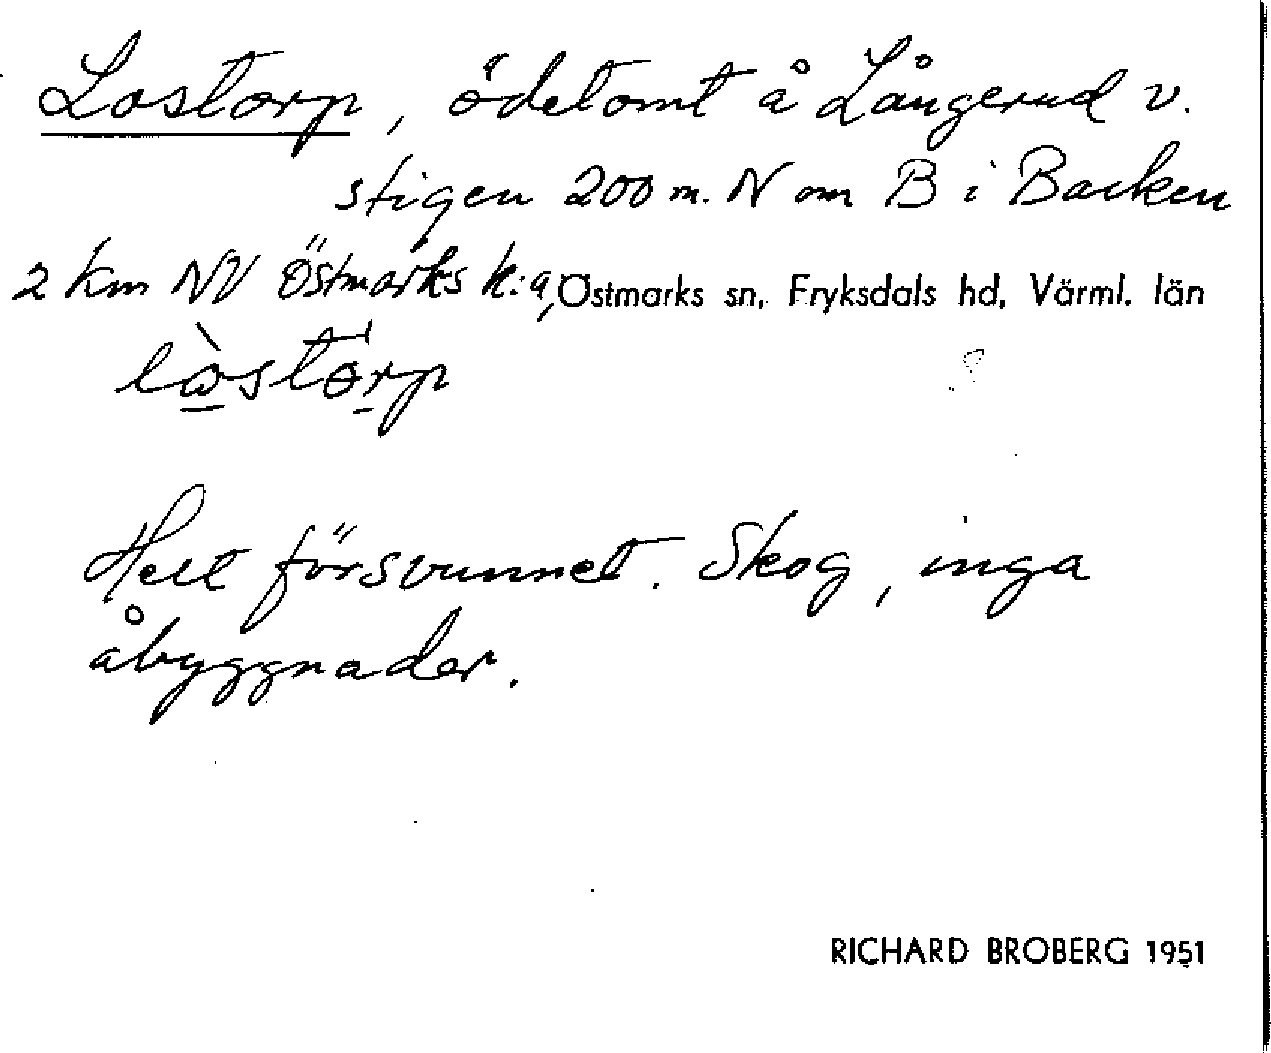 Lostorp, ödetomt å Långerud v.
stigen 200 m. N om B i Backen
2 km NV Östmarks k:a, Östmarks sn, Fryksdals hd, Värml. län
Helt försvunnet. Skog, inga
åbyggnader.
RICHARD BROBERG 1951